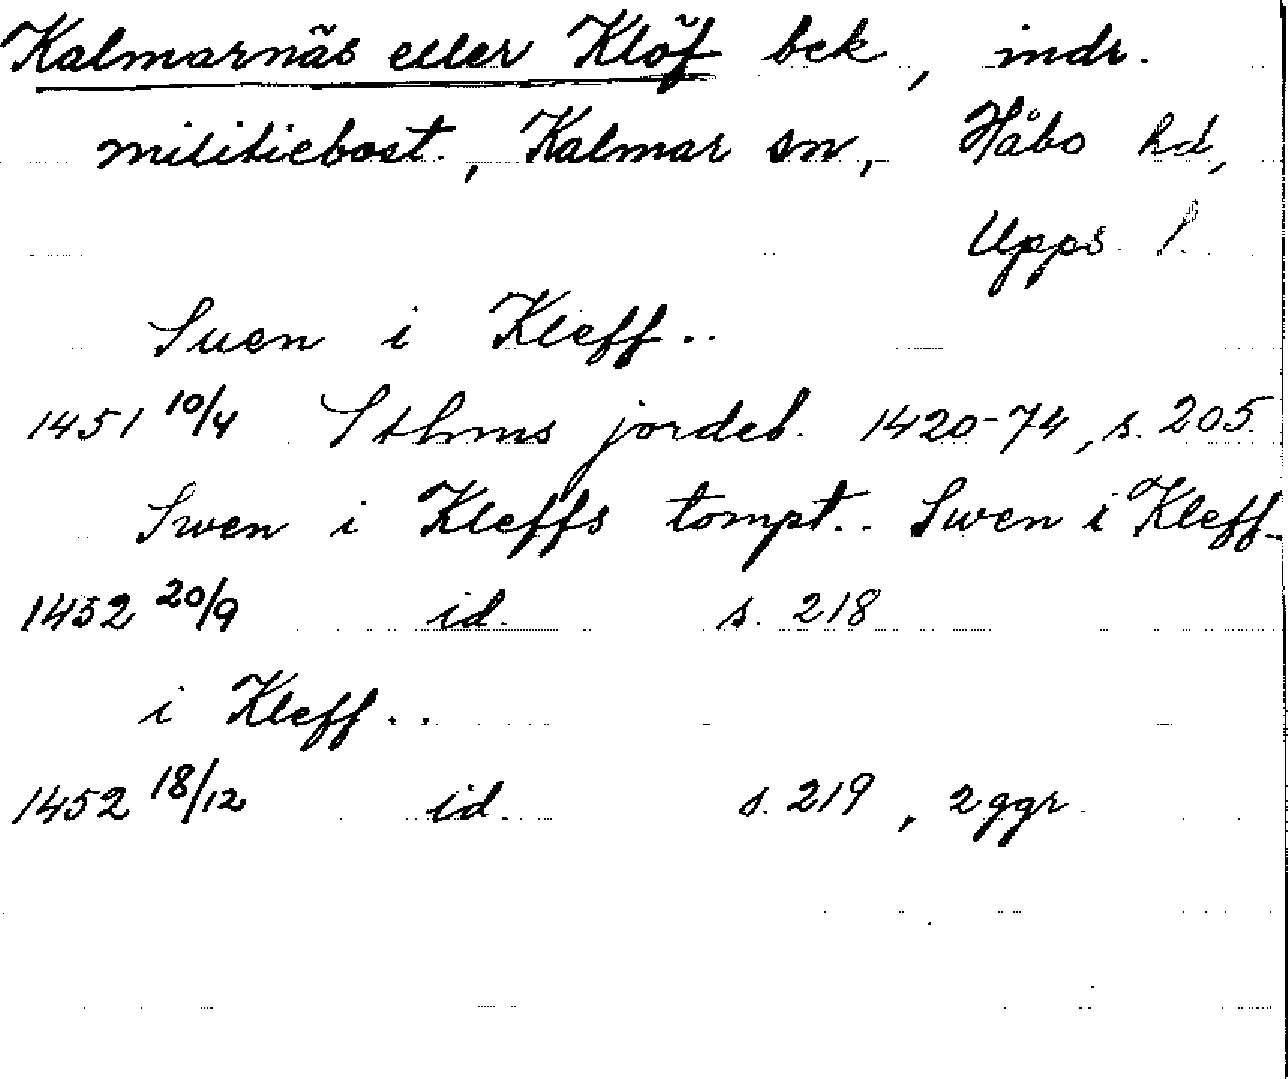 Kalmarnäs eller Klöf bek, indr.
militiebost., Kalmar sn, Håbo hd,
Upps. l.
Suen i Kleff..
1451 10/4 Sthms jordeb. 1420-74, s. 205.
Swen i Kleffs tompt.. Swen i Kleff..
1452 20/9 id. s. 218
i Kleff..
1452 18/12 id. s. 219, 2 ggr